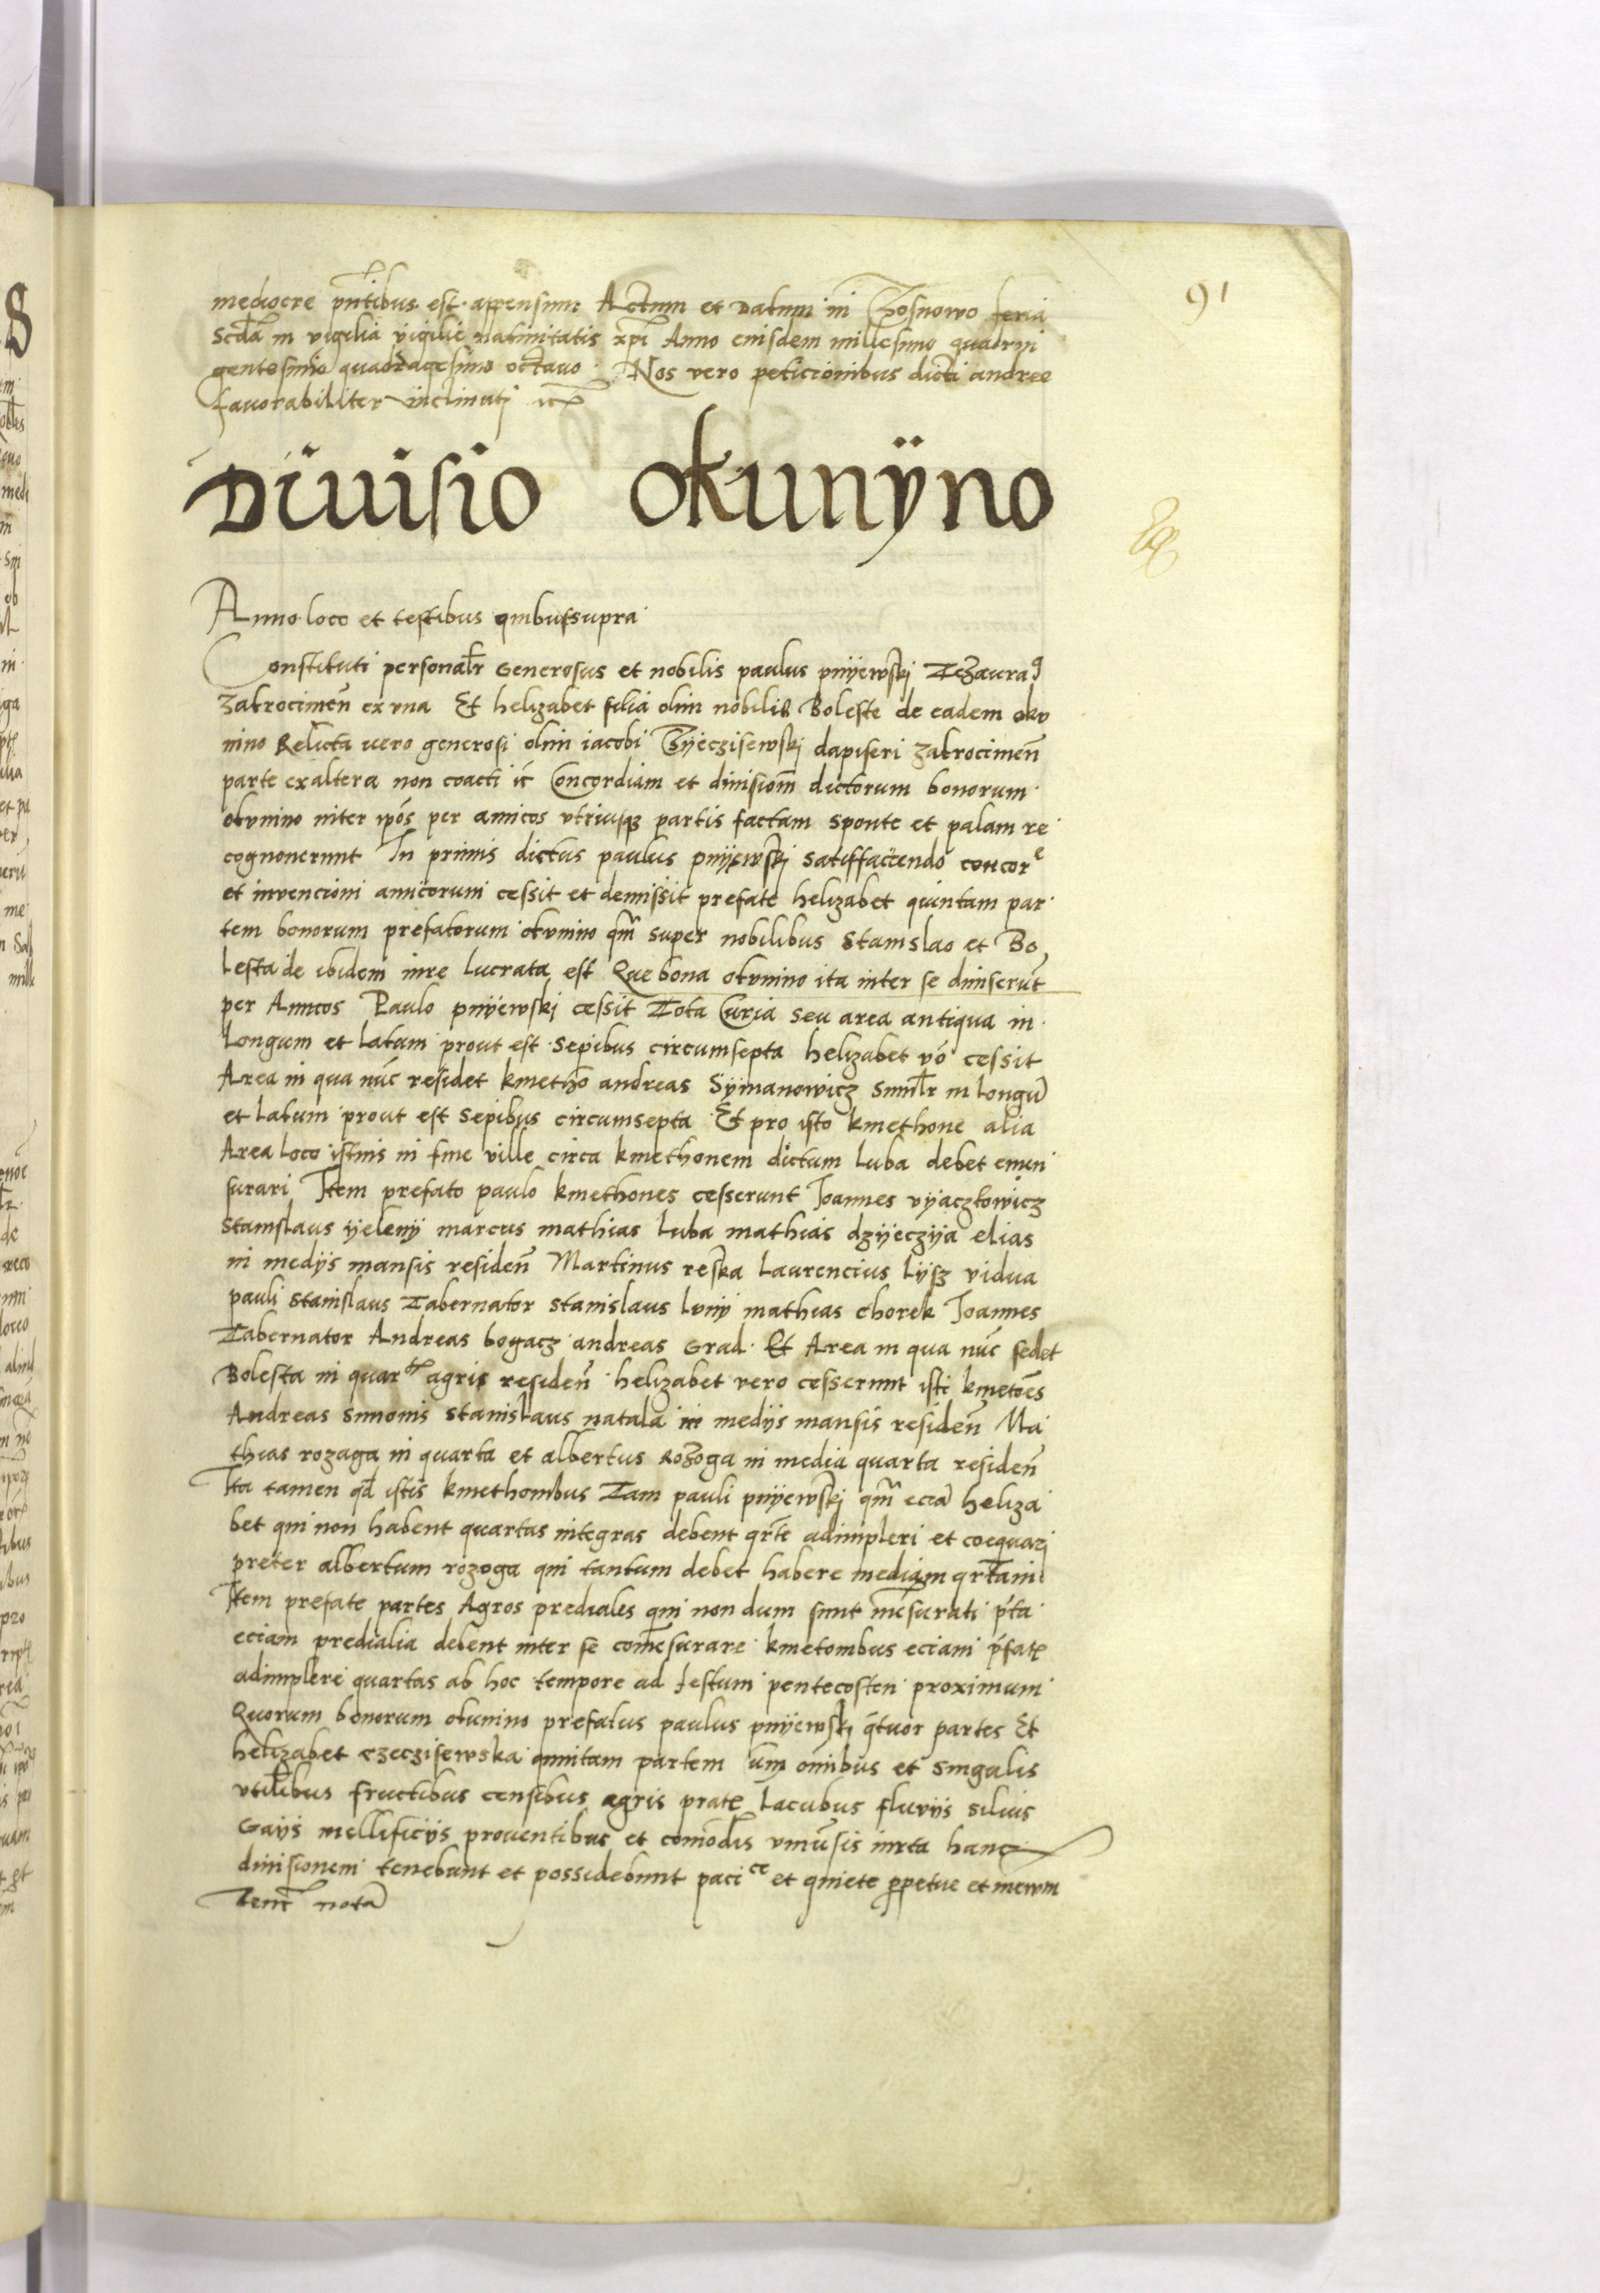 91
mediocre pñtibus est appensum Actum et Datum in Sosnowo feria
Scda in vigilia vigilie nativitatis xpi Anno eiusdem millesimo quadrin
gentesimo quadragesimo octavo Nos vero peticionibus dicti andree
favorabiliter inclinati
Divisio Okunÿno
Anno loco et testibus quibus supra
Constituti personalr Generosus et nobilis paulus pnÿewskj Tezaura9
Zakrocimeñ ex vna Et helizabet filia olim nobilis Boleste de eadem oku
nino Relicta vero generosi olim iacobi dapiferi zakrocimeñ
parte ex altera non coacti ic Concordiam et divisiom dictorum bonorum
okvnino inter ipos per amicos vtriusq partis factam sponte et palam re
cognoverunt In primis dictus paulus pnÿewskj satisfaciendo concor
et invencioni amicorum cessit et demissit prefate helizabet quintam par
tem bonorum prefatorum okvnino qm super nobilibus Stanislao et Bo
lesta de ibidem iure lucrata est Que bona okvnino ita inter se diviserut
per Amicos Paulo pnÿewskj cessit Tota Curia seu area antiqua in
Longum et latum prout est sepibus circumsepta helizabet vo cessit
Area in qua nuc residet kmetho andreas Sÿmanowicz similr in longu
et latum prout est sepibus circumsepta Et pro isto kmethone alia
Area loco istius in fine ville circa kmethonem dictum luba debet emen
surari Item prefato paulo kmethones cesserunt Joannes vÿaczkowicz
Stanislaus ÿelenÿ marcus mathias luba mathias dzÿeczÿa elias
in medÿs mansis resideñ Martinus reska laurencius lÿsz vidua
pauli stanislaus Tabernator stanislaus lvnÿ mathias chorek Joannes
Tabernator Andreas bogacz andreas Grad Et Area in qua nuc sedet
Bolesta in quar agris resideñ helizabet vero cesserunt isti kmetoes
Andreas simonis stanislaus natala in medÿs mansis resideñ Ma
thias rozaga in quarta et albertus Rozoga in media quarta resideñ
Ita tamen qd istis kmethonibus Tam pauli pnÿewskj qm ecia heliza
bet qui non habent quartas integras debent qrte adimpleri et coequarj
preter albertum rozoga qui tantum debet habere mediam qrtam
Item prefate partes Agros prediales qui non dum sunt mesurati pta
eciam predialia debent inter se comesurare kmetonibus eciam pfate
adimplere quartas ab hoc tempore ad festum pentecosten proximum
Quorum bonorum okunino prefatus paulus pnÿewskj qtuor partes Et
helizabet czeczisewska quintam partem cum omibus et singulis
vtilibus fructibus censibus agris prate lacubus fluvÿs silvis
Gaÿs mellificÿs proventibus et comodis vniusis iuxta hanc
divisionem tenebunt et possidebunt paci ce et quiete ppetue et inewm
Tenr nota